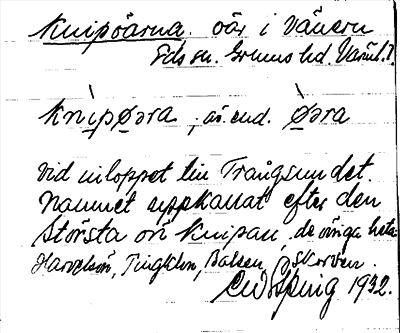 Knipöarna. öar i Vänern
Eds sn. Grums hd. Värml.
knìpøəra, äv. end. Øəra
vid inloppet till Trångsundet.
Namnet uppkallat efter den
största ön Knipan, de övriga heta
Harvelsön, Tingklon, Balsen, Skorven.
1932.